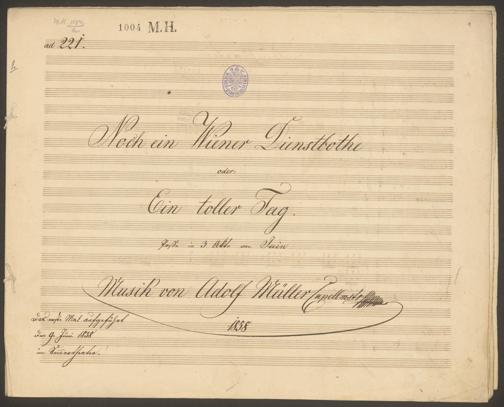 1004 M.H.
ad 221.
Noch ein Wiener Dienstbothe
oder
Ein toller Tag.
Posse in 3 Akt. von
Musik von Adolf Müller Capellmstr
1838
das erste Mal aufgeführt
den 9. Juni 1838
im